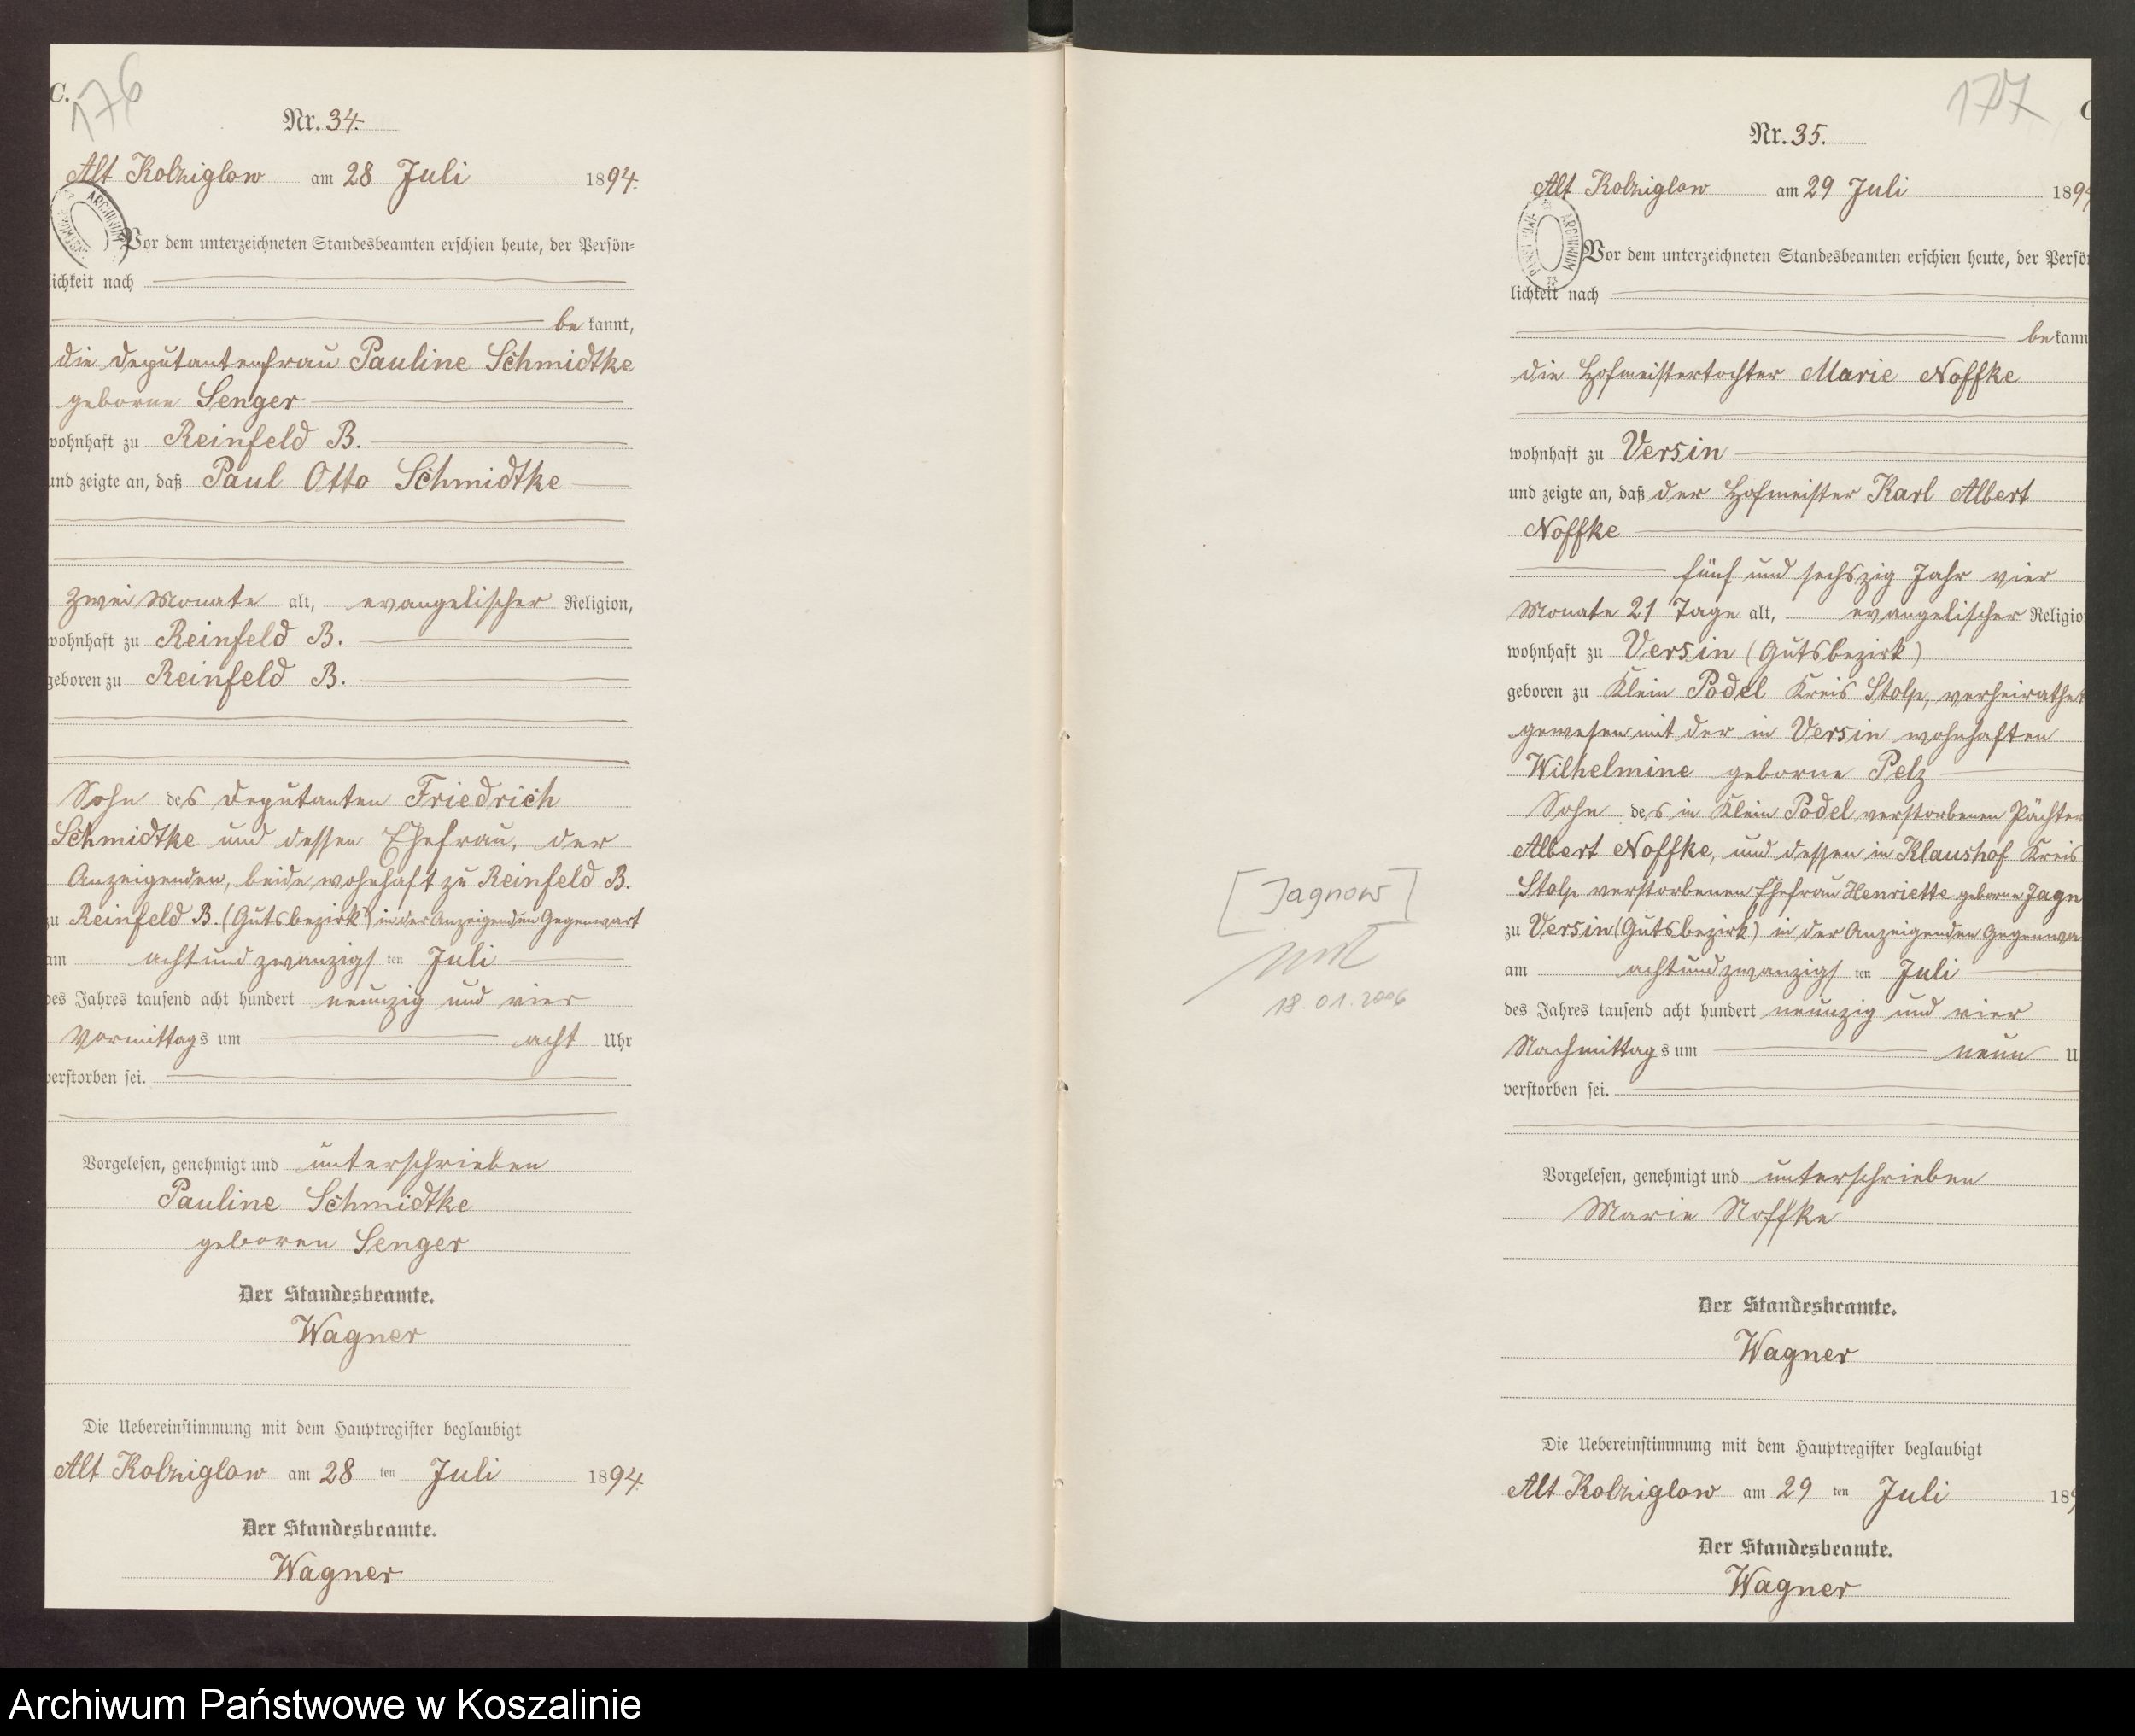 C.
176
Nr. 34.
Alt Kolziglow am 28 Juli 1894.
ARCHIWUM
Vor dem unterzeichneten Standesbeamten erschien heute, der Persön-
lichkeit nach
be kannt,
die Deputantenfrau Pauline Schmidtke
geborne Senger
wohnhaft zu Reinfeld B.
und zeigte an, daß Paul Otto Schmidtke
zwei Monate alt, evangelischer Religion,
wohnhaft zu Reinfeld B.
geboren zu Reinfeld B.
Sohn des Deputanten Friedrich
Schmidtke und dessen Ehefrau, der
Anzeigenden, beide wohnhaft zu Reinfeld B.
zu Reinfeld B. (Gutsbezirk) in der Anzeigenden Gegenwart
am achtundzwanzigsten Juli
des Jahres tausend acht hundert neunzig und vier
Vormittags um acht Uhr
verstorben sei.
Vorgelesen, genehmigt und unterschrieben
Pauline Schmidtke
geboren Senger
Der Standesbeamte.
Wagner
Die Uebereinstimmung mit dem Hauptregister beglaubigt
Alt Kolziglow am 28 ten Juli 1894.
Der Standesbeamte.
Wagner
177
C
Nr. 35.
Alt Kolziglow am 29 Juli 1894
ARCHIWUM
Vor dem unterzeichneten Standesbeamten erschien heute, der Persö
lichkeit nach
be kann
die Hofmeistertochter Marie Noffke
wohnhaft zu Versin
und zeigte an, daß der Hofmeister Karl Albert
Noffke
fünf und sechszig Jahr vier
Monate 21 Tage alt, evangelischer Religio
wohnhaft zu Versin (Gutsbezirk)
geboren zu Klein Podel Kreis Stolp, verheirathet
gewesen mit der in Versin wohnhaften
Wilhelmine geborne Pelz
Sohn des in Klein Podel verstorbenen Pächter
Albert Noffke, und dessen in Klaushof Kreis
Stolp verstorbenen Ehefrau Henriette geborne Jagn
zu Versin (Gutsbezirk) in der Anzeigenden Gegenwa
am achtundzwanzigsten Juli
des Jahres tausend acht hundert neunzig und vier
Nachmittags um neun U
verstorben sei.
[Jagnow]
18.01.2006
Vorgelesen, genehmigt und unterschrieben
Marie Noffke
Der Standesbeamte.
Wagner
Die Uebereinstimmung mit dem Hauptregister beglaubigt
Alt Kolziglow am 29 ten Juli 189
Der Standesbeamte.
Wagner
Archiwum Państwowe w Koszalinie